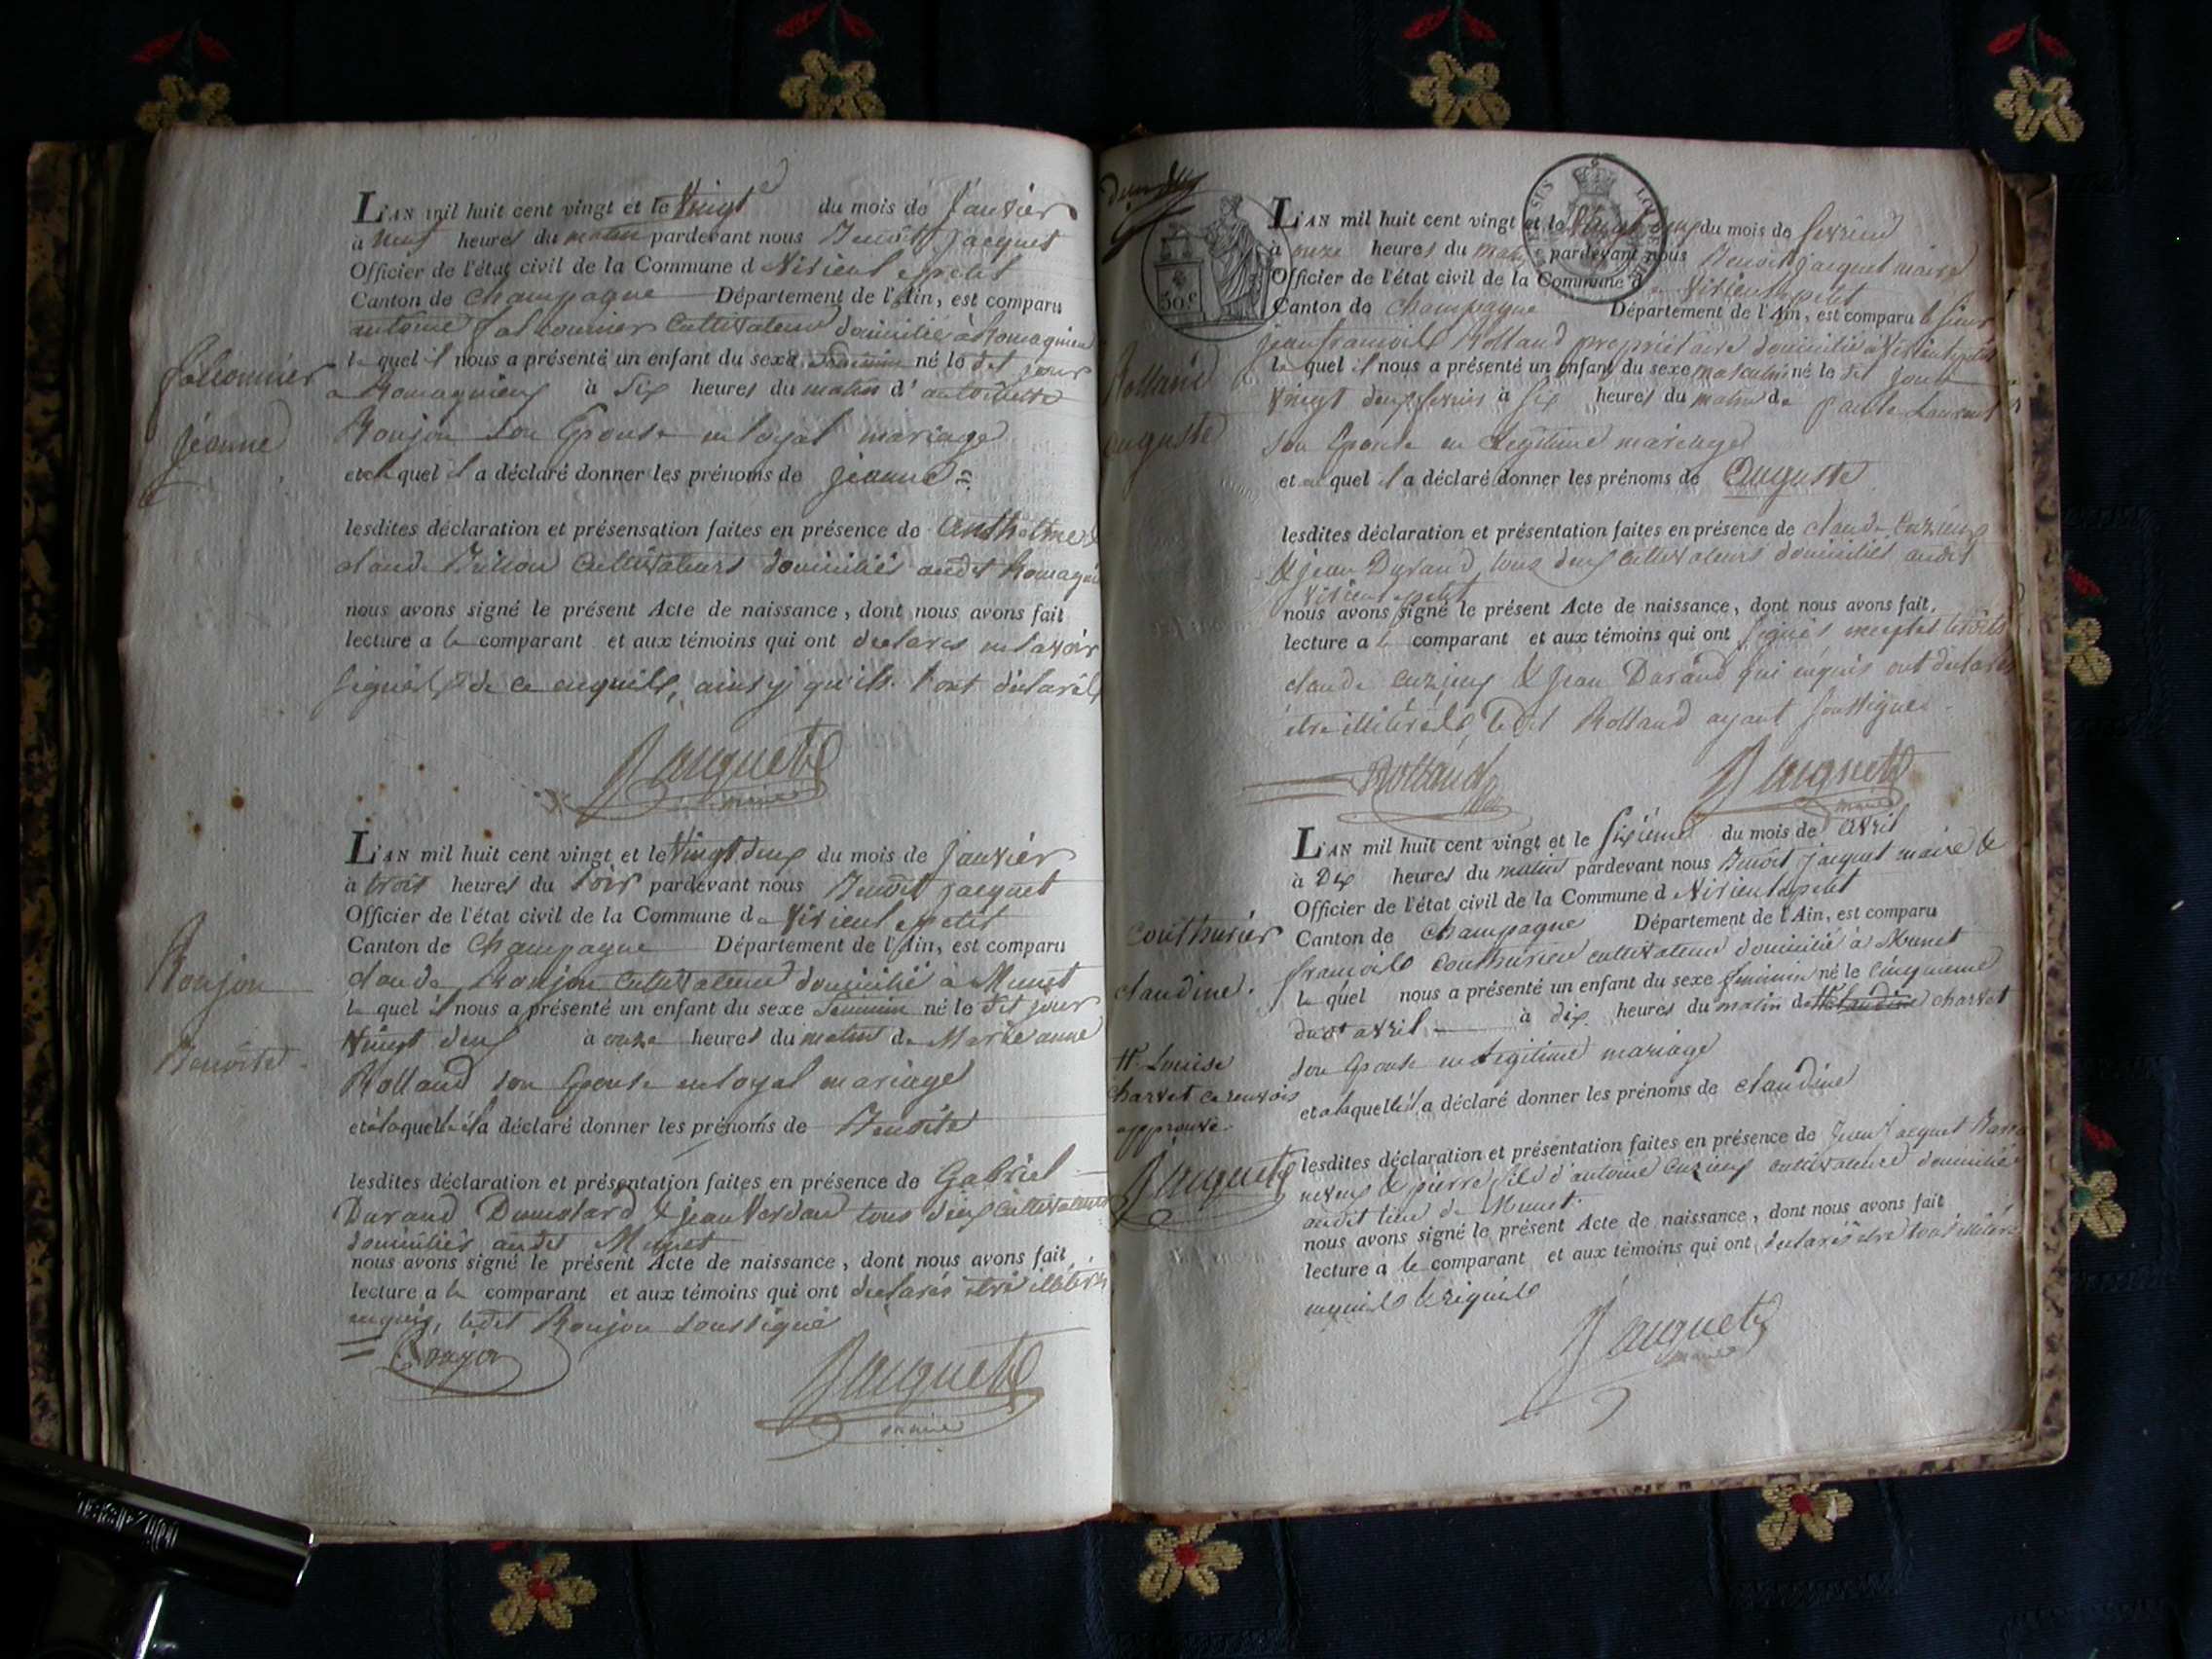 falconnier
jeanne
L'AN mil huit cent vingt et le Vingt du mois de Janvier
à neuf heures du matin pardevant nous Benoît jacquet
Officier de l'état civil de la Commune d Virieu le petit
Canton de Champagne Département de l'Ain, est comparu
antoine falconnier Cultivateur domicilié à Romagnieu
le quel il nous a présenté un enfant du sexe feminin né le dit jour
a Romagnieu à Six heures du matin d' antoinette
Roujon son Epouse en loyal mariage
et quel il a déclaré donner les prénoms de jeanne
lesdites déclaration et présensation faites en présence de Anthelme &
claude Billion Cultivateurs domiciliés audit Romagnieu
nous avons signé le présent Acte de naissance, dont nous avons fait
lecture a le comparant et aux témoins qui ont declarés ne savoir
signer de ce enquis, ainsy qu'ils l'ont déclaré
Jacquet
maire
Roujon
Benoîte
L'AN mil huit cent vingt et le Vingt deux du mois de janvier
à trois heures du soir pardevant nous Benoît jacquet
Officier de l'état civil de la Commune de Virieu le petit
Canton de Champagne Département de l'Ain, est comparu
claude Roujon Cultivateur domicilié à Munet
le quel il nous a présenté un enfant du sexe feminin né le dit jour
Vingt deux à onze heures du matin de Marie anne
Rolland son Epouse en loyal mariage
et a laquelle il a déclaré donner les prénoms de Benoîte
lesdites déclaration et présentation faites en présence de Gabriel
Durand Dumolard & jean Verdan tous deux Cultivateurs
domiciliés audit Munet
nous avons signé le présent Acte de naissance, dont nous avons fait
lecture a le comparant et aux témoins qui ont declarés être illitérés
enquis, ledit Roujon soussigné
Roujon
Jacquet
maire
30 c
Rolland
auguste
L'AN mil huit cent vingt et le Vingt deux du mois de fevrier
à onze heures du matin pardevant nous Benoît jacquet maire
Officier de l'état civil de la Commune de Virieu le petit
Canton de Champagne Département de l'Ain, est comparu le sieur
jean françois Rolland propriétaire domicilié à Virieu le petit
le quel il nous a présenté un enfant du sexe masculin né le dit jour
Vingt deux fevrier à six heures du matin de paule Laurent
son Epouse en Legitime mariage
et au quel il a déclaré donner les prénoms de Auguste
lesdites déclaration et présentation faites en présence de claude Cuzieux
& jean Durand tous deux cultivateurs domiciliés audit
Virieu le petit
nous avons signé le présent Acte de naissance, dont nous avons fait
lecture a le comparant et aux témoins qui ont signés exceptés lesdits
claude cuzieux & Jean Durand qui enquis ont declarés
etre illitérés, ledit Rolland ayant soussigné
Rolland
Jacquet
maire
Couthurier
claudine
L'AN mil huit cent vingt et le sixième du mois de avril
à Dix heures du matin pardevant nous Benoît jacquet maire &
Officier de l'état civil de la Commune d Virieu le petit
Canton de Champagne Département de l'Ain, est comparu
françois Couthurier cultivateur domicilié à Munet
le quel nous a présenté un enfant du sexe feminin né le cinquieme
dudt avril à dix heures du matin de # claudine charvet
son Epouse en Legitime mariage
et a laquelle il a déclaré donner les prénoms de claudine
# Louise
charvet ce renvois
approuvé
Jacquet
lesdites déclaration et présentation faites en présence de Jean jacquet
neveu & pierre fils d'antoine Cuzieux cultivateurs domiciliés
audit lieu de Munet
nous avons signé le présent Acte de naissance, dont nous avons fait
lecture a le comparant et aux témoins qui ont declarés etre tous illitérés
enquis & requis
Jacquet
maire